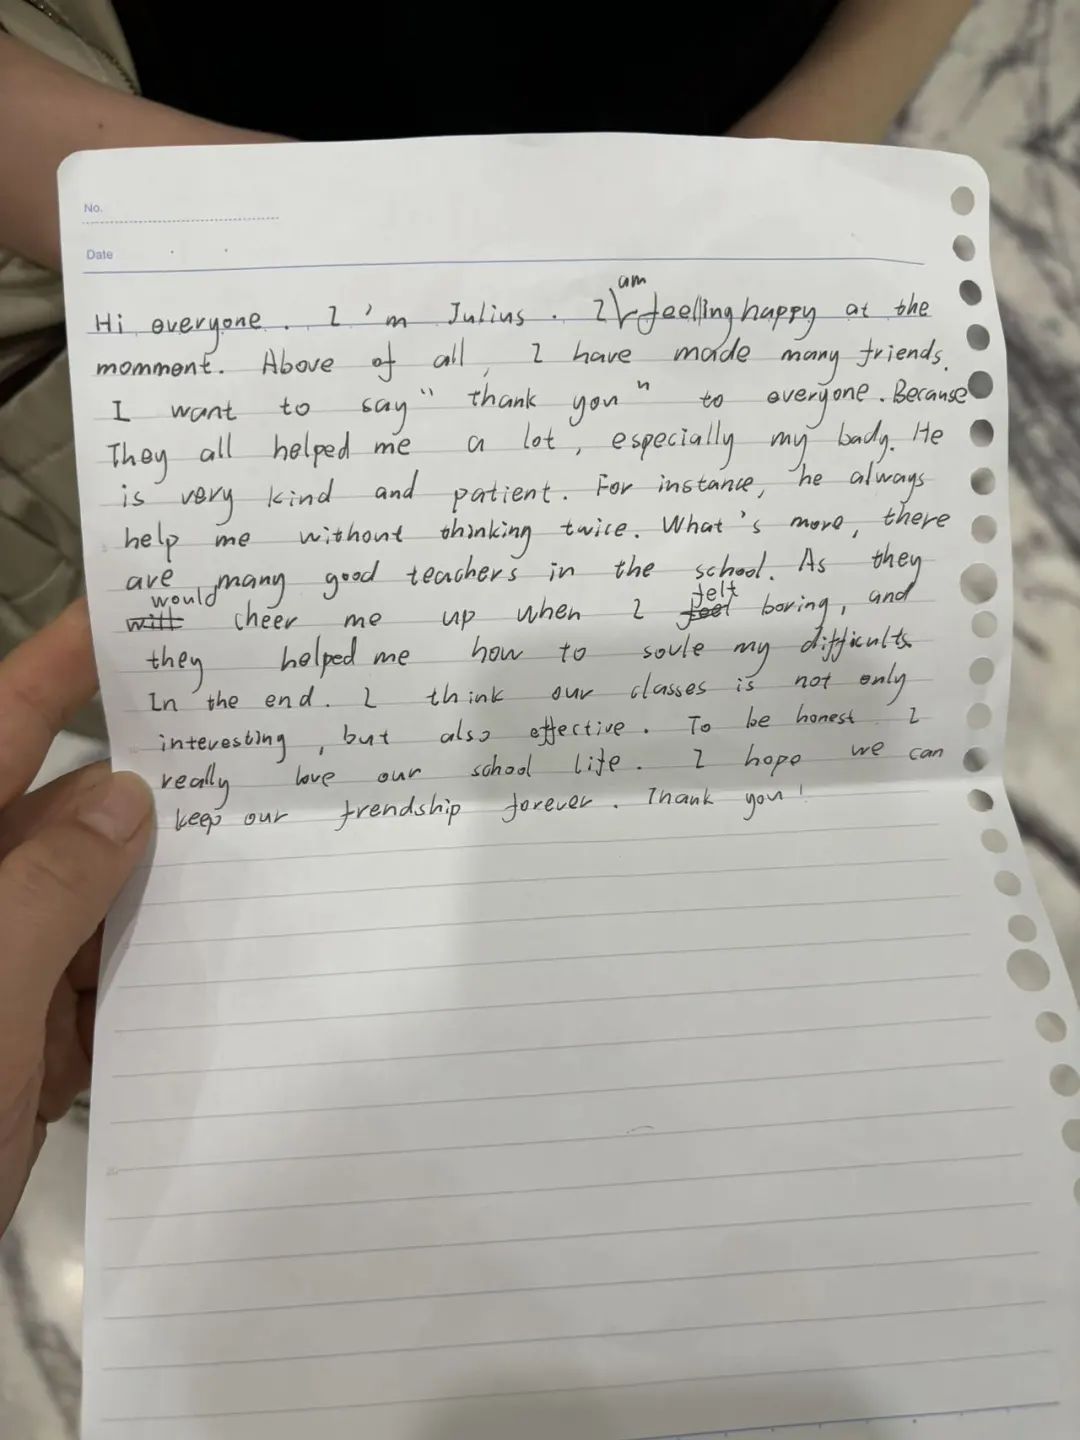 No.
Date
Hi everyone. I'm Julius. I am feelling happy at the
momment. Above of all, I have made many friends.
I want to say "thank you" to everyone. Because
They all helped me a lot, especially my bady. He
is very kind and patient. For instance, he always
help me without thinking twice. What's more, there
are many good teachers in the school. As they
would cheer me up when I felt boring, and
they helped me how to soule my difficults.
In the end. I think our classes is not only
interesting, but also effective. To be honest I
really love our school life. I hope we can
keep our frendship forever. Thank you!